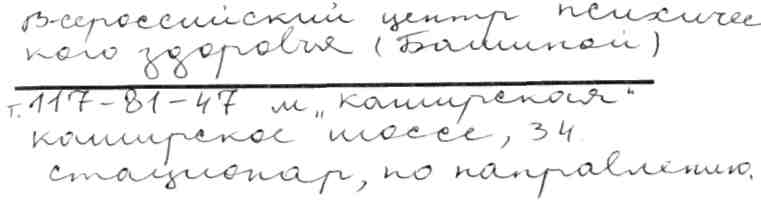 Всероссийский центр психичес
кого здоровья (Башиной)
т. 117-81-47 м „Каширская“
Каширское шоссе, 34.
стационар, по направлению.